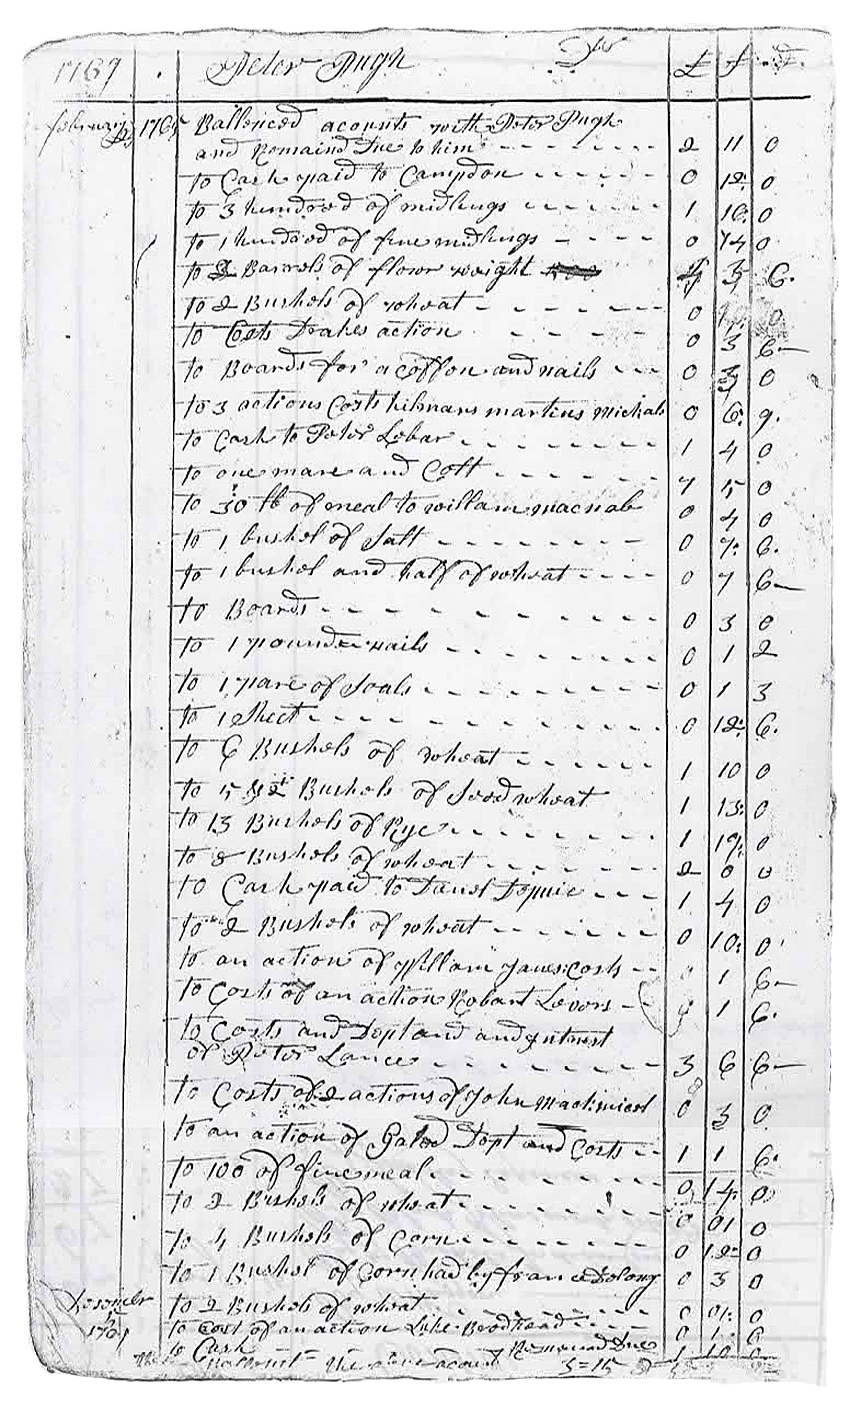 1769 Peter Pugh Dr £ s d
february 1765 Ballenced acounts with Peter Pugh
and Remaind Due to him 2 11 0
to Cash paid to Campdon 0 12 0
to 3 hundred of midlings 1 16 0
to 1 hundred of fine midlings 0 14 0
to 2 Barrels of flour weight 3 6
to 2 Bushels of wheat 0
to Costs Drakes action 0 3 6
to Boards for a coffon and nails 0 3 0
to 3 actions Costs hilmans martins Michals 0 6 9
to Cash to Peter Lobar 1 4 0
to one mare and Colt 7 5 0
to 30 lb of meal to willam macnab 0 4 0
to 1 bushel of salt 0 7 6
to 1 bushel and half of wheat 0 7 6
to Boards 0 3 0
to 1 pounde nails 0 1 2
to 1 pare of Soals 0 1 3
to 1 Sheet 0 12 6
to 6 Bushels of wheat 1 10 0
to 5 Bushels of Seed wheat 1 13 0
to 13 Bushels of Rye 1 19 0
to 8 Bushels of wheat 2 0 0
to Cash paid to Daniel Depuie 1 4 0
to 2 Bushels of wheat 0 10 0
to an action of Willam Janes Costs 1 6
to Costs of an action Robart Levors 1 6
to Costs and Dept and and Intrest
of Peter Lance 3 6 6
to Costs of 2 actions of John 0 3 0
to an action of Dept and Costs 1 1 6
to 100 of fine meal 0 14 0
to 2 Bushels of wheat 0 01 0
to 4 Bushels of Corn 0 12 0
to 1 Bushel of Corn had by france Delong 0 3 0
to 2 Bushels of wheat 0 01 0
to Cost of an action Luke Brodhead 0 1 6
to Cash 1 10 0
Remaind Due
the above acount 3=15